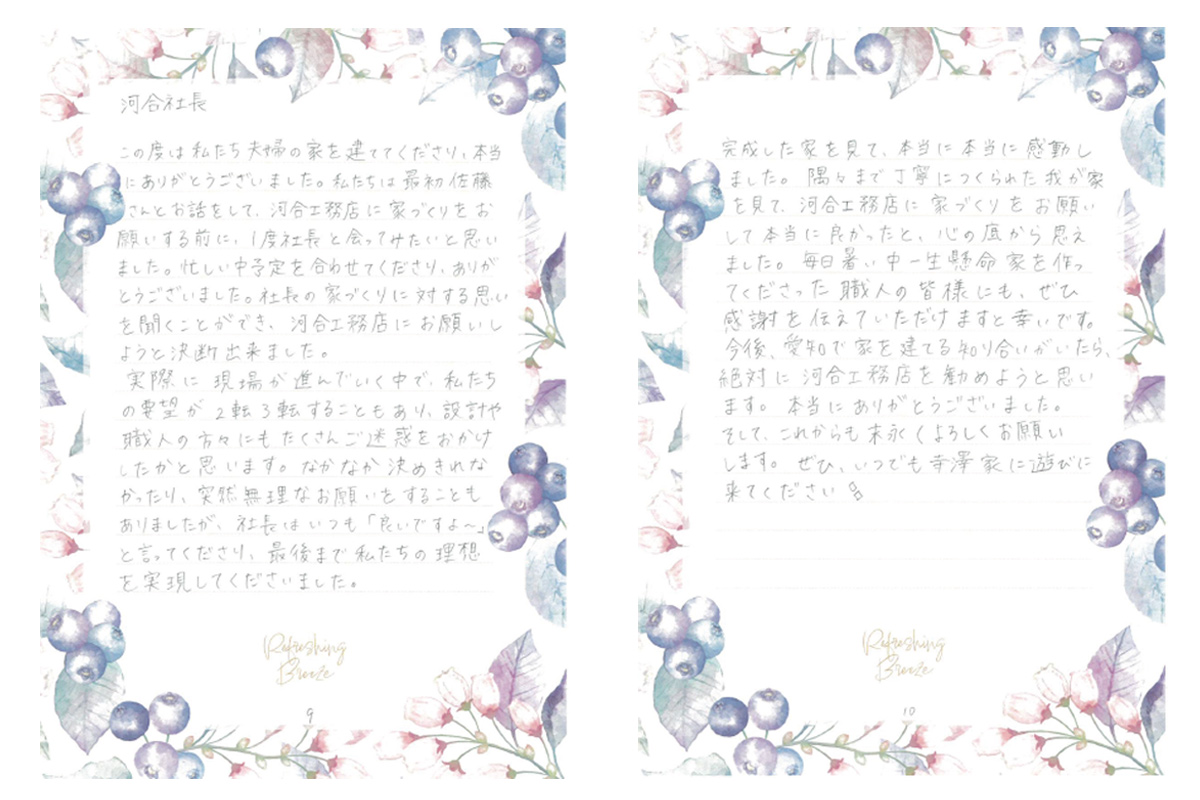 河合社長
この度は私たち夫婦の家を建ててくださり、本当
にありがとうございました。私たちは最初佐藤
さんとお話をして、河合工務店に家づくりをお
願いする前に、1度社長と会ってみたいと思い
ました。忙しい中予定を合わせてくださり、ありが
とうございました。社長の家づくりに対する思い
を聞くことができ、河合工務店にお願いし
ようと決断出来ました。
実際に現場が進んでいく中で、私たち
の要望が2転3転することもあり、設計や
職人の方々にもたくさんご迷惑をおかけ
したかと思います。なかなか決めきれな
かったり、突然無理なお願いをすることも
ありましたが、社長はいつも「良いですよ〜」
と言ってくださり、最後まで私たちの理想
を実現してくださいました。
Refreshing
Breeze
9
完成した家を見て、本当に本当に感動し
ました。隅々まで丁寧につくられた我が家
を見て、河合工務店に家づくりをお願い
して本当に良かったと、心の底から思え
ました。毎日暑い中一生懸命家を作っ
てくださった職人の皆様にも、ぜひ
感謝を伝えていただけますと幸いです。
今後、愛知で家を建てる知り合いがいたら、
絶対に河合工務店を勧めようと思い
ます。本当にありがとうございました。
そして、これからも末永くよろしくお願い
します。ぜひ、いつでも寺澤家に遊びに
来てください
Refreshing
Breeze
10